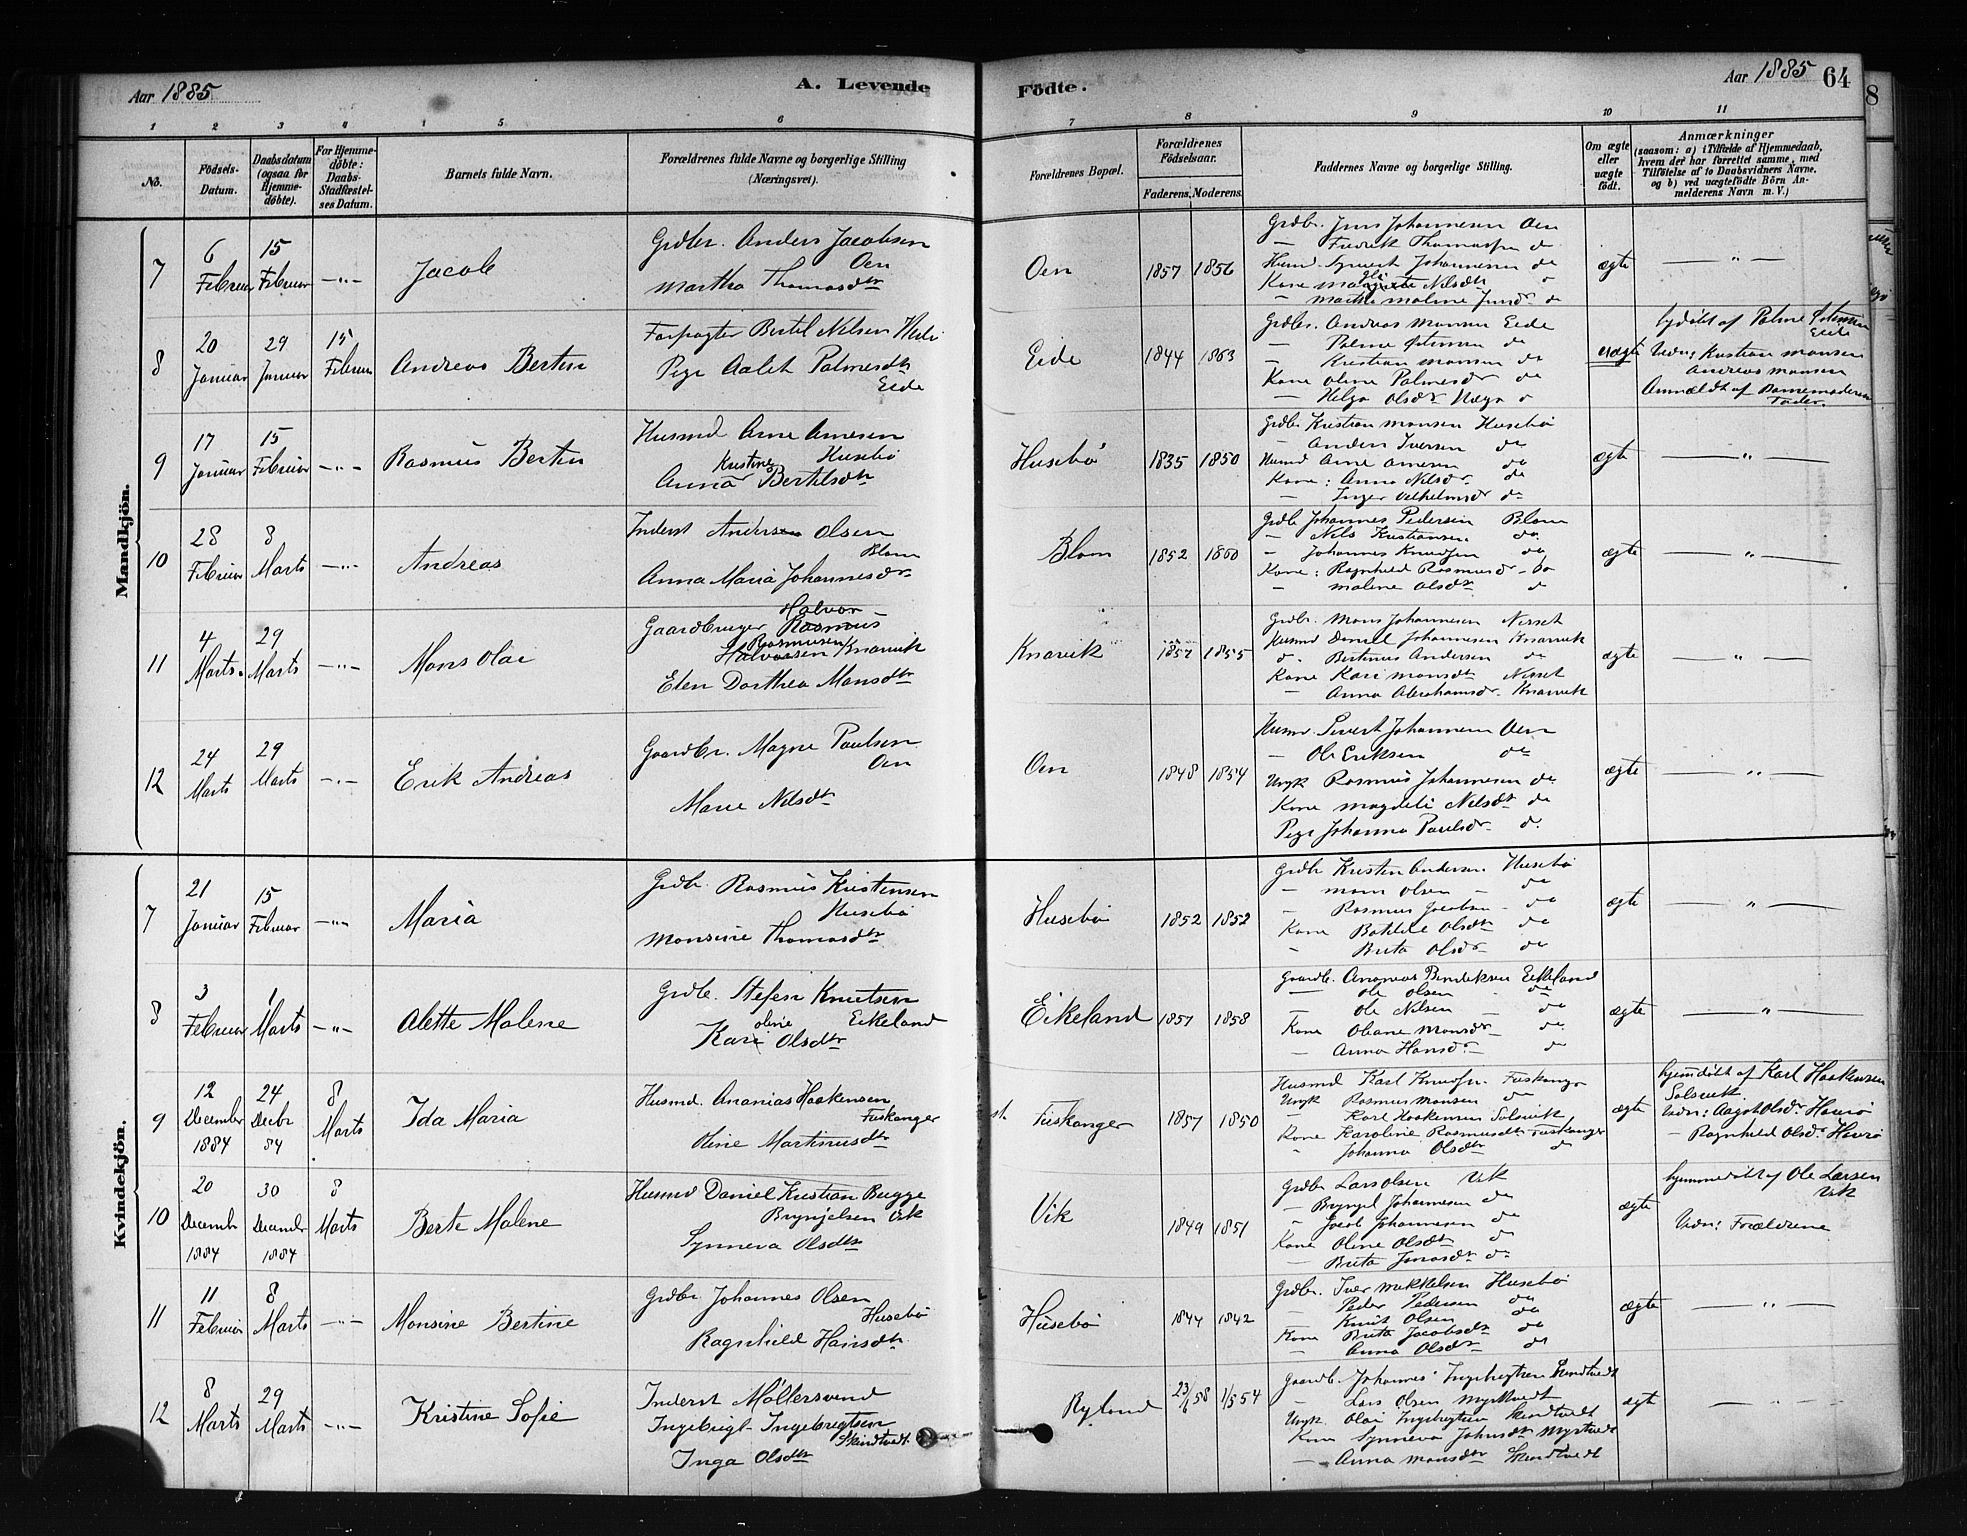 Aar 1885
A. Levende
Födte.
Aar 1885
64
8
1 2 3 4 1 5 6
7 8 9 10 11
No.
Födsels-
Datum.
Daabsdatum
(ogsaa for
Hjemme-
döbte).
For Hjemme-
döbte:
Daabs-
Stadfæstel-
ses Datum.
Barnets fulde Navn.
Forældrenes fulde Navne og borgerlige Stilling
(Næringsvei).
Forældrenes Bopæl.
Forældrenes
Födselsaar.
Faderens. Moderens.
Faddernes Navne og borgerlige Stilling.
Om ægte
eller
uægte
födt.
Anmærkninger
(saasom: a) i Tilfælde af Hjemmedaab,
hvem der har forrettet samme, med
Tilföielse af to Daabsvidners Navne,
og b) ved uægtefödte Börn An-
melderens Navn m. V.)
Mandkjön.
7
6
Februar
15
Februar
—"—
Jacob
Grdbr. Anders Jacobsen
Oen
Martha Thomasdtr
Oen
1857 1856
Grdbr. Jens Johannesen Oen
— Fredrik Thomassen do
Husmd. Syvert Johannesen do
Nilsdtr
Malene
ægte
— " —
8
20
Januar
29
Januar
15
Februar
Andreas Bertin
Forpagter Bertel Nilsen
Pige Aalet Palmesdtr
Eide
Eide
1844 1863
Grdbr. Andreas Monsen Eide
— Palme do
— Kristian Monsen do
Kone Oline Palmesdr do
— Helga Olsdtr
uægte
hjdöbt af Palme
Eide
Vidn: Kristian Monsen
Andreas Monsen
Anmeldt af Barnemoderens
Fader.
9
17
Januar
15
Februar
—"—
Rasmus Bertin
Husmd Arne Arnesen
Husebö
Kristine
Anna Bertelsdtr
Husebö
1835 1850
Grdb. Kristian Monsen Husebö
— Anders Iversen do
Husmd Arne Arnesen do
Kone: Anna Nilsdr do
— Inger Vilhelmsdr do
ægte
— " —
10
28
Februar
8
Marts
—"—
Andreas
Inderst Anders Olsen
Blom
Anna Maria Johannesdr
Blom
1852 1860
Grdb Johannes Pedersen Blom
— Nils Kristiansen do
— Johannes Knudsen do
Kone: Ragnhild Rasmusdr do
— Malene Olsdtr do
ægte
— " —
11
4
Marts
29
Marts
—"—
Mons Olai
Halvor
Gaardbruger Rasmus
Rasmusen
Halvorsen Knarvik
Elen Dorthea Monsdtr
Knarvik
1857 1855
Grdbr. Mons Johannesen Nesset
Husmd Daniel Johannesen Knarvik
do. Bertinus Andersen do
Kone Kari Monsdtr Nesset
— Anna Abrahamsdr Knarvik
ægte
— " —
12
24
Marts
29
Marts
—"—
Erik Andreas
Gaardbr. Magne Paulsen
Oen
Marie Nilsdtr
Oen
1848 1854
Husmd. Sivert Johannesen Oen
— Ole Eriksen do
Ungk Rasmus Johannesen do
Kone Magdeli Nilsdtr do
Pige Johanna Paulsdr do.
ægte
— " —
Kvindekjön.
7
21
Januar
15
Februar
—"—
Maria
Grdb. Rasmus Kristensen
Husebö
Monsine Thomasdtr
Husebö
1852 1852
Grdb Kristen Andersen Husebö
— Mons Olsen — do
— Rasmus Jacobsen do
Kone Bothilde Olsdtr do
— Brita Olsdr do
ægte
— " —
8
3
Februar
1
Marts
—"—
Alette Malene
Grdb. Stefen Knutsen
Eikeland
oline
Kari Olsdtr
Eikeland
1857 1858
Gaardb. Ananias Bendiksen Eikeland
— Ole Olsen do
— Ole Nilsen do
Kone Oliane Monsdr do
— Anna Hansdr do
ægte
— " —
9
12
December
1884
24
Decbr
84
8
Marts
Ida Maria
Husmd. Ananias Haakensen
Fuskanger
Oline Martinusdtr
Fuskanger
1857 1850
Husmd Karl Knudsen Fuskanger
Ungk Rasmus Monsen do
— Karl Haakensen Solsvik
Kone Karoline Rasmusdtr Fuskanger
" Johanna Olsdtr do
ægte
hjemdöbt af Karl Haakensen
Solsvik
Vidn: Aagot Olsdr
— Ragnhild Olsdr
10
20
Decembr
1884
30
Decembr
1884
8
Marts
Berte Malene
Husmd Daniel Kristian Bugge
Brynjelsen Vik
Synneva Olsdtr
Vik
1849 1851
Grdbr Lars Olsen Vik
— Bryngel Johannesen do
" Jacob Johannesen do
Kone Oline Olsdtr do
— Brita Jonasdtr do
ægte
hjemmedöbt af Ole Larsen
Vik
Vidn: Forældrene
11
11
Februar
8
Marts
—"—
Monsine Bertine
Grdbr Johannes Olsen
Husebö
Ragnhild Hansdtr
Husebö
1844 1842
Grdbr. Iver Mikkelsen Husebö
— Peder Pedersen do
— Knut Olsen do
Kone Brita Jacobsdtr do
— Anna Olsdtr do
ægte
— " —
12
8
Marts
29
Marts
—"—
Kristine Sofie
Inderst Möllersvend
Ingebrigt Ingebregtsen
Skindtvedt
Inga Olsdtr
Ryland
23/6 58 1/5 54
Gaardb. Johannes Ingebrigtsen Skindtvedt
— Lars Olsen Myrtvedt
Ungk. Olai Ingebrigtsen Skindtvedt
Kone Synneva Johnsdtr Myrtvedt
— Anna Monsdtr Skindtvedt
ægt
— " —